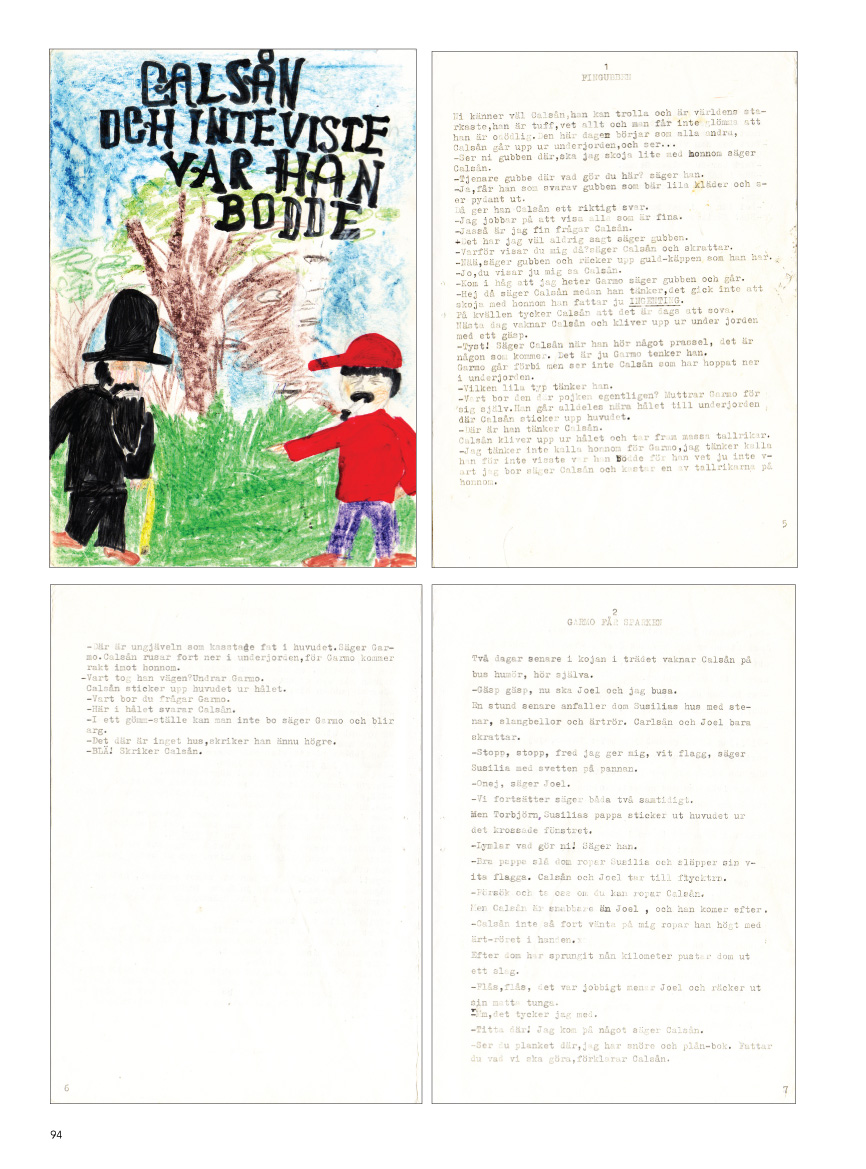 CALSÅN
OCH INTE VISTE
VAR HAN
BODDE
1
FINGUBBEN
Ni känner väl Calsån,han kan trolla och är världens sta-
rkaste,han är tuff,vet allt och man får inte glömma att
han är oaödlig.Den här dagen börjar som alla andra,
Calsån går upp ur underjorden,och ser...
-Ser ni gubben där,ska jag skoja lite med honnom säger
Calsån.
-Tjenare gubbe där vad gör du här? säger han.
-Ja,får han som svarav gubben som bär lila kläder och s-
er pydant ut.
Då ger han Calsån ett riktigt svar.
-Jag jobbar på att visa alla som är fina.
-Jasså är jag fin frågar Calsån.
-Det har jag väl aldrig sagt säger gubben.
-Varför visar du mig då?säger Calsån och skrattar.
-Nää,säger gubben och räcker upp guld-käppen som han har.
-Jo,du visar ju mig sa Calsån.
-Kom i håg att jag heter Garmo säger gubben och går.
-Hej då säger Calsån medan han tänker,det gick inte att
skoja med honnom han fattar ju INGENTING.
På kvällen tycker Calsån att det är dags att sova.
Nästa dag vaknar Calsån och kliver upp ur under jorden
med ett gäsp.
-Tyst! Säger Calsån när han hör något prassel, det är
någon som kommer. Det är ju Garmo tenker han.
Garmo går förbi men ser inte Calsån som har hoppat ner
i underjorden.
-Vilken lila typ tänker han.
-Vart bor den där pojken egentligen? Muttrar Garmo för
sig själv.Han går alldeles nära hålet till underjorden
där Calsån sticker upp huvudet.
-Där är han tänker Calsån.
Calsån kliver upp ur hålet och tar fram massa tallrikar.
-Jag tänker inte kalla honnom för Garmo,jag tänker kalla
han för inte visste var han Bodde för han vet ju inte v-
art jag bor säger Calsån och kastar en av tallrikarna på
honnom.
5
-Där är ungjäveln som kasstade fat i huvudet.Säger Gar-
mo.Calsån rusar fort ner i underjorden,för Garmo kommer
rakt imot honnom.
-Vart tog han vägen?Undrar Garmo.
Calsån sticker upp huvudet ur hålet.
-Vart bor du frågar Garmo.
-Här i hålet svarar Calsån.
-I ett gömm-ställe kan man inte bo säger Garmo och blir
arg.
-Det där är inget hus,skriker han ännu högre.
-BLÄ! Skriker Calsån.
6
2
GARMO FÅR SPARKEN
Två dagar senare i kojan i trädet vaknar Calsån på
bus humör, hör själva.
-Gäsp gäsp, nu ska Joel och jag busa.
En stund senare anfaller dom Susilias hus med ste-
nar, slangbellor och ärtrör. Carlsån och Joel bara
skrattar.
-Stopp, stopp, fred jag ger mig, vit flagg, säger
Susilia med svetten på pannan.
-Onej, säger Joel.
-Vi fortsätter säger båda två samtidigt.
Men Torbjörn,Susilias pappa sticker ut huvudet ur
det krossade fönstret.
-Lymlar vad gör ni! Säger han.
-Bra pappa slå dom ropar Susilia och släpper sin v-
ita flagga. Calsån och Joel tar till flycktrn.
-Försök och ta oss om du kan ropar Calsån.
Men Calsån är snabbare än Joel , och han komer efter.
-Calsån inte så fort vänta på mig ropar han högt med
ärt-röret i handen.
Efter dom har sprungit nån kilometer pustar dom ut
ett slag.
-Flås,flås, det var jobbigt menar Joel och räcker ut
sin matta tunga.
-Mm,det tycker jag med.
-Titta där! Jag kom på något säger Calsån.
-Ser du planket där,jag har snöre och plån-bok. Fattar
du vad vi ska göra,förklarar Calsån.
7
94